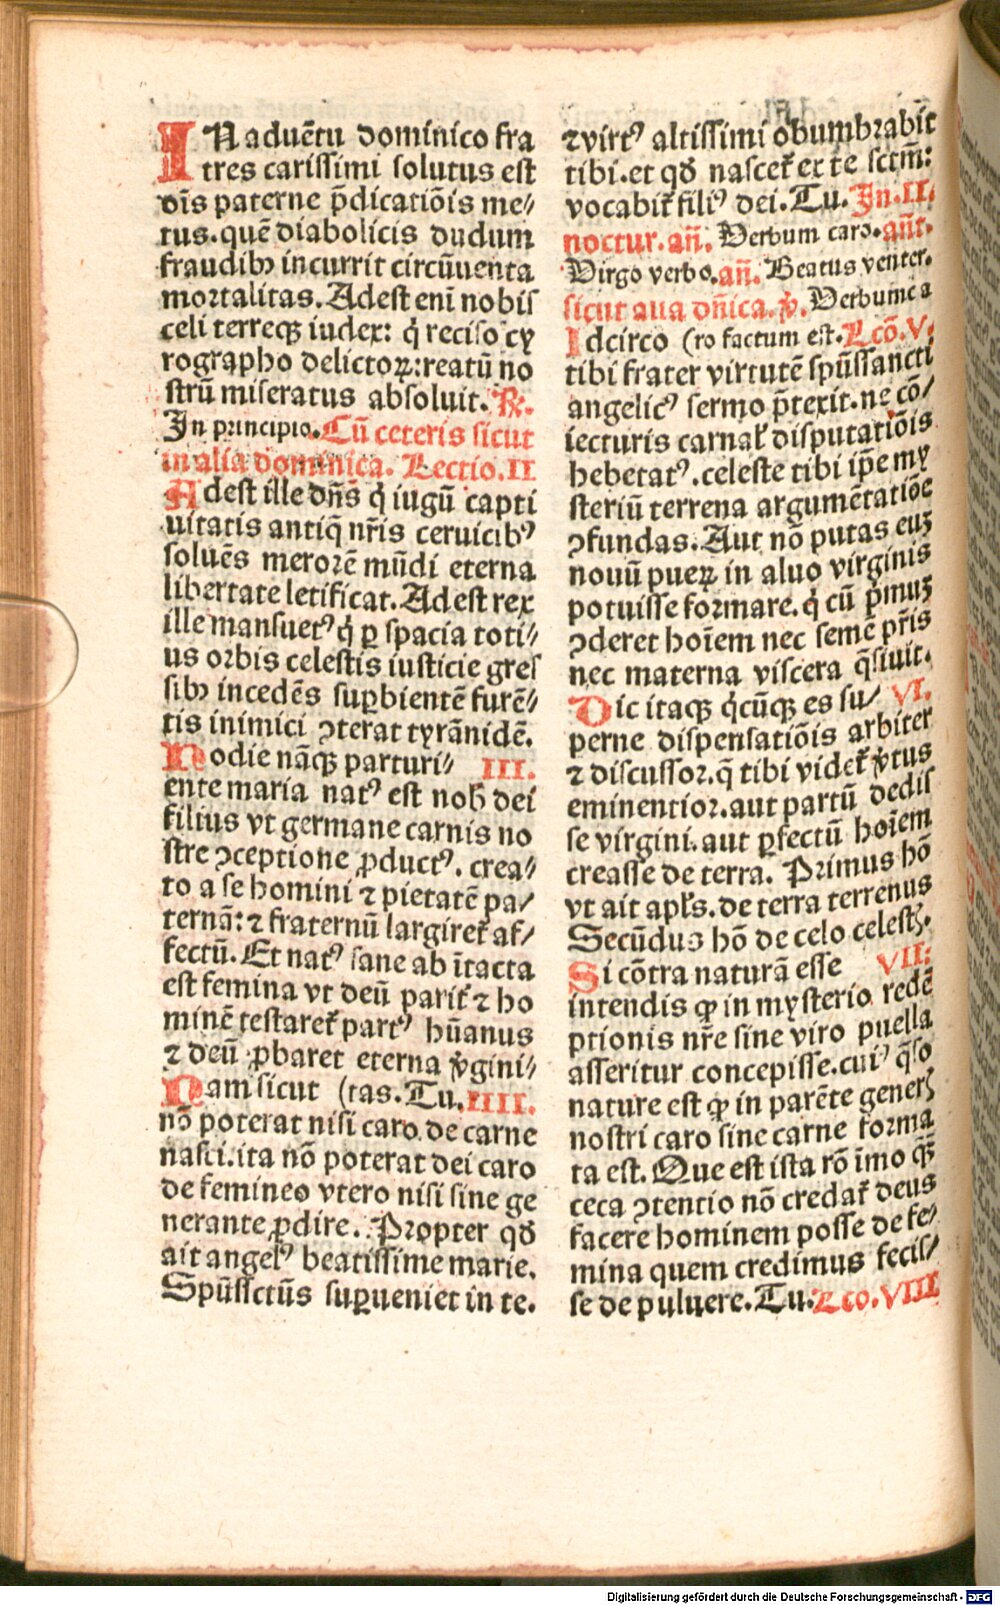 IN aduētu dominico fra
tres carissimi solutus est
oīs paterne p̄dicatiōis me⸗
tus.quē diabolicis dudum
fraudibꝫ incurrit circūuenta
mortalitas. Adest enī nobis
celi terreqꝫ iudex: q̇ reciso cy
rographo delictoꝝ: reatū no
strū miseratus absoluit. ℟.
In principio. Cū ceteris sicut
in alia dominica. Lectio.II
Adest ille dn̄s q̇ iugū capti
uitatis antiq̄ nr̄is ceruicibꝰ
soluēs merorē mūdi eterna
libertate letificat. Adest rex
ille mansuetꝰ q̇ ꝑ spacia toti⸗
us orbis celestis iusticie gres
sibꝫ incedēs suꝑbientē furē⸗
tis inimici ꝯterat tyrānidē.
Hodie nāqꝫ parturi⸗ III.
ente maria natꝰ est nob̄ dei
filius vt germane carnis no
stre ꝯceptione ꝓductꝰ. crea⸗
to a se homini ⁊ pietatē pa⸗
ternā: ⁊ fraternū largiret̄ af⸗
fectū. Et natꝰ sane ab ītacta
est femina vt deū parit̄ ⁊ ho
minē testaret̄ partꝰ hūanus
⁊ deū ꝓbaret eterna v̇gini⸗
Nam sicut (tas. Tu. IIII.
nō poterat nisi caro de carne
nasci. ita nō poterat dei caro
de femineo vtero nisi sine ge
nerante ꝓdire. Propter qd̄
ait angelꝰ beatissime marie.
Spūssctūs suꝑueniet in te.
⁊ virtꝰ altissimi obumbrabit
tibi. et qd̄ nascet̄ ex te sctm̄:
vocabit̄ filiꝰ dei. Tu. In.II.
noctur. an̄. Verbum caro. an̄t.
Virgo verbo. an̄. Beatus venter.
sicut aīīa dn̄ica. v̇. Verbum ca
Idcirco (ro factum est. Lcō.V.
tibi frater virtutē spūssancti
angelicꝰ sermo p̄texit. ne cō⸗
iecturis carnal̄ disputatiōis
hebetatꝰ. celeste tibi ip̄e my
steriū terrena argumētatiōe
ꝯfundas. Aut nō putas euꝫ
nouū pueꝝ in aluo virginis
potuisse formare. q̇ cū p̄muꝫ
ꝯderet hoīem nec semē pr̄is
nec materna viscera q̄siuit.
Dic itaqꝫ q̇cūqꝫ es su⸗ VI.
perne dispensatiōis arbiter
⁊ discussor. q̄ tibi videt̄ v̇tus
eminentior. aut partū dedis
se virgini. aut ꝑfectū hoīem
creasse de terra. Primus hō
vt ait apl̄s. de terra terrenus
Secūdus hō de celo celestꝭ.
Si cōtra naturā esse VII:
intendis ꝙ in mysterio redē
ptionis nr̄e sine viro puella
asseritur concepisse. cuiꝰ q̄so
nature est ꝙ in parēte generꝭ
nostri caro sine carne forma
ta est. Que est ista rō īmo qꝫ̄
ceca ꝯtentio nō credat̄ deus
facere hominem posse de fe⸗
mina quem credimus fecis⸗
se de puluere. Tu. Lco. VIII
Digitalisierung gefördert durch die Deutsche Forschungsgemeinschaft - DFG